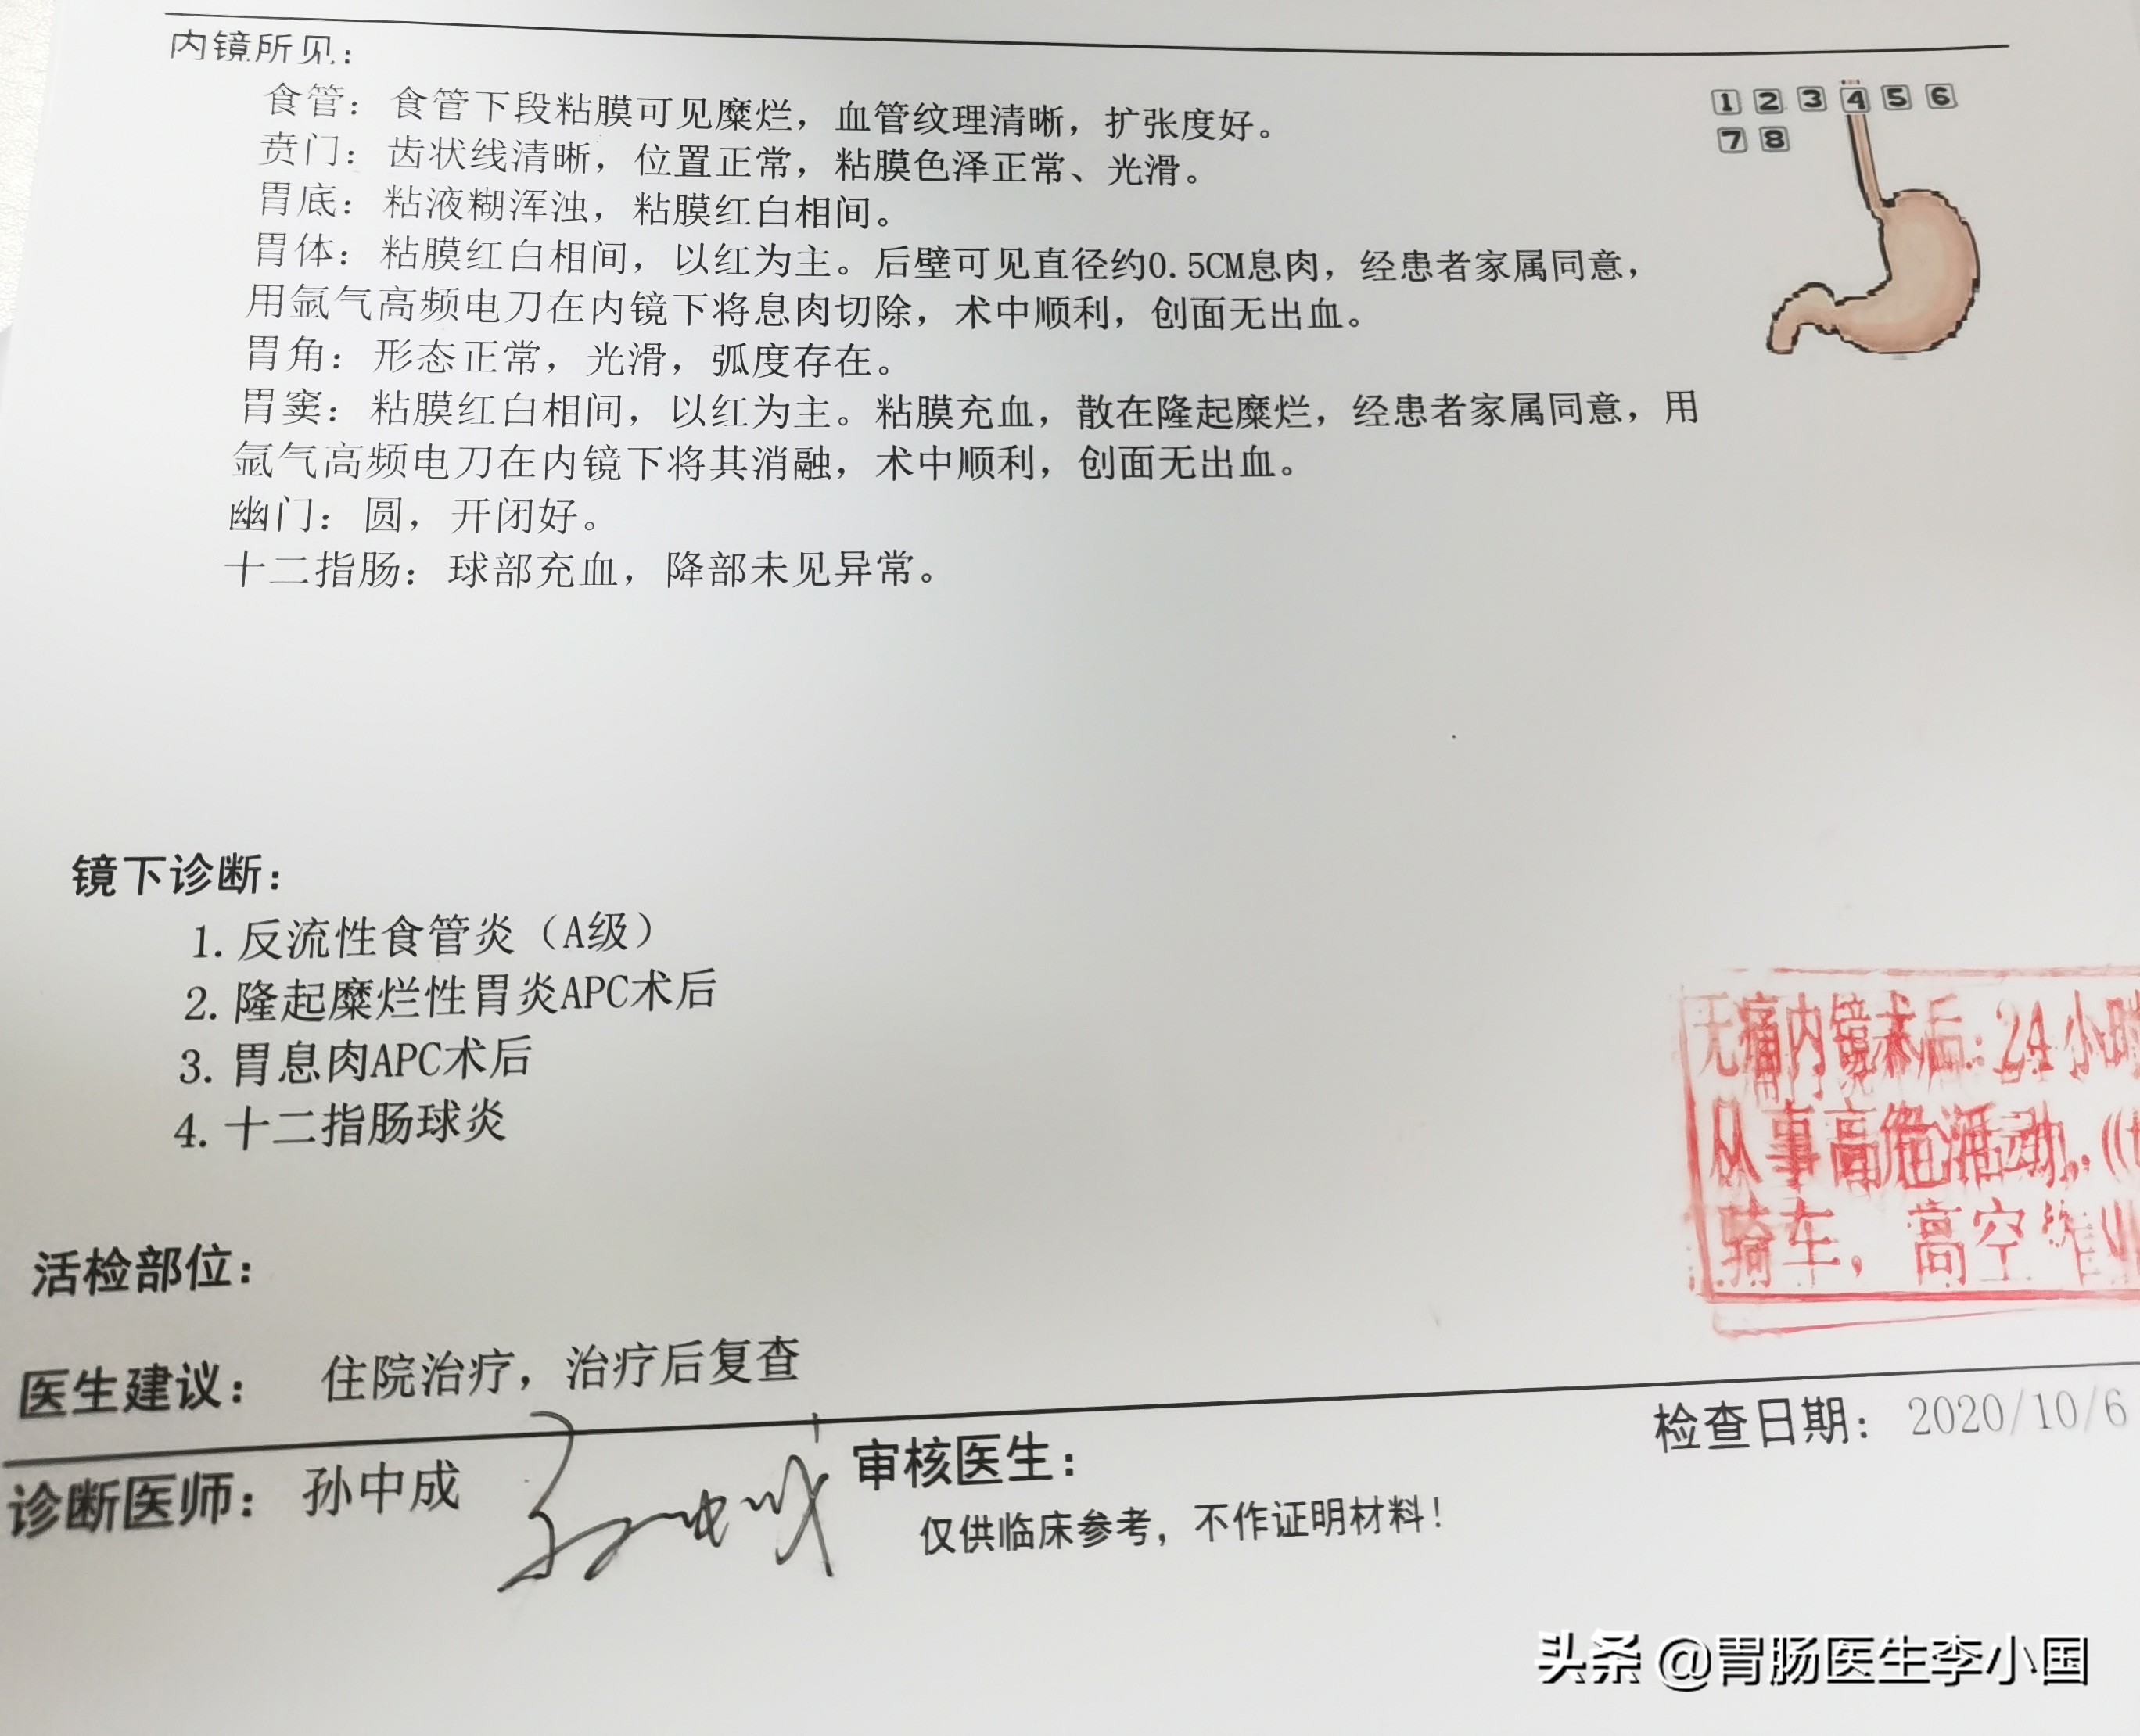 内镜所见:
食管: 食管下段粘膜可见糜烂, 血管纹理清晰, 扩张度好。
贲门: 齿状线清晰, 位置正常, 粘膜色泽正常、光滑。
胃底: 粘液糊浑浊, 粘膜红白相间。
胃体: 粘膜红白相间, 以红为主。后壁可见直径约0.5CM息肉, 经患者家属同意,
用氩气高频电刀在内镜下将息肉切除, 术中顺利, 创面无出血。
胃角: 形态正常, 光滑, 弧度存在。
胃窦: 粘膜红白相间, 以红为主。粘膜充血, 散在隆起糜烂, 经患者家属同意, 用
氩气高频电刀在内镜下将其消融, 术中顺利, 创面无出血。
幽门: 圆, 开闭好。
十二指肠: 球部充血, 降部未见异常。
1 2 3 4 5 6
7 8
镜下诊断:
1. 反流性食管炎（A级）
2. 隆起糜烂性胃炎APC术后
3. 胃息肉APC术后
4. 十二指肠球炎
无痛内镜术后: 24小时
从事高危活动,
骑车, 高空作业
活检部位:
医生建议: 住院治疗, 治疗后复查
诊断医师: 孙中成 孙中成 审核医生: 检查日期: 2020/10/6
仅供临床参考, 不作证明材料!
头条 @胃肠医生李小国